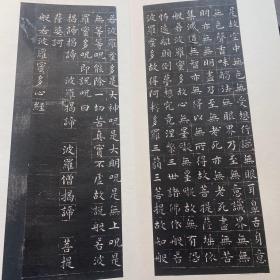 是故空中無色無受想行識無眼耳鼻舌身意
無色聲香味觸法無眼界乃至無意識界無無
明亦無無明盡乃至無老死亦無老死盡無苦
集滅道無智亦無得以無所得故菩提薩埵依
般若波羅蜜多故心無罣礙無罣礙故無有恐
怖遠離顛倒夢想究竟涅槃三世諸佛依般若
波羅蜜多故得阿耨多羅三藐三菩提故知般
若波羅蜜多是大神呪是大明呪是無上呪是
無等等呪能除一切苦真實不虛故說般若波
羅蜜多呪即說呪曰
揭諦揭諦 波羅揭諦 波羅僧揭諦 菩提
薩婆訶
般若波羅蜜多心經